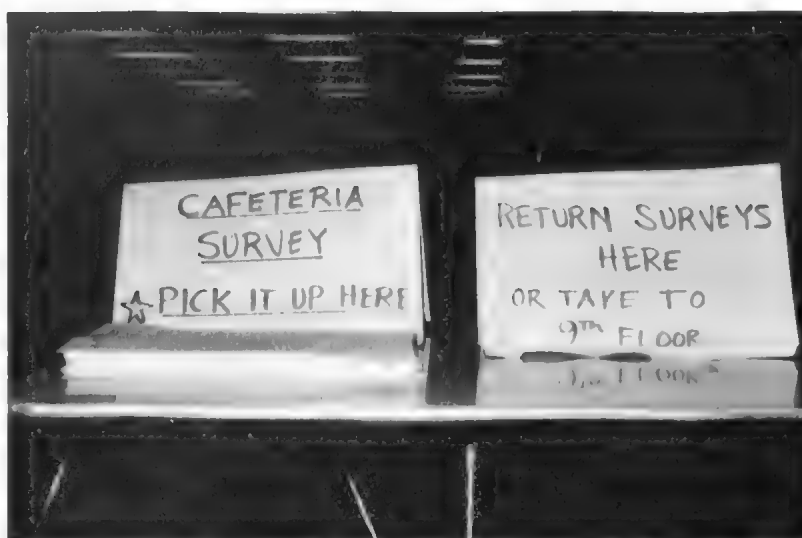 CAFETERIA
SURVEY
☆ PICK IT UP HERE
RETURN SURVEYS
HERE
OR TAKE TO
9TH FLOOR